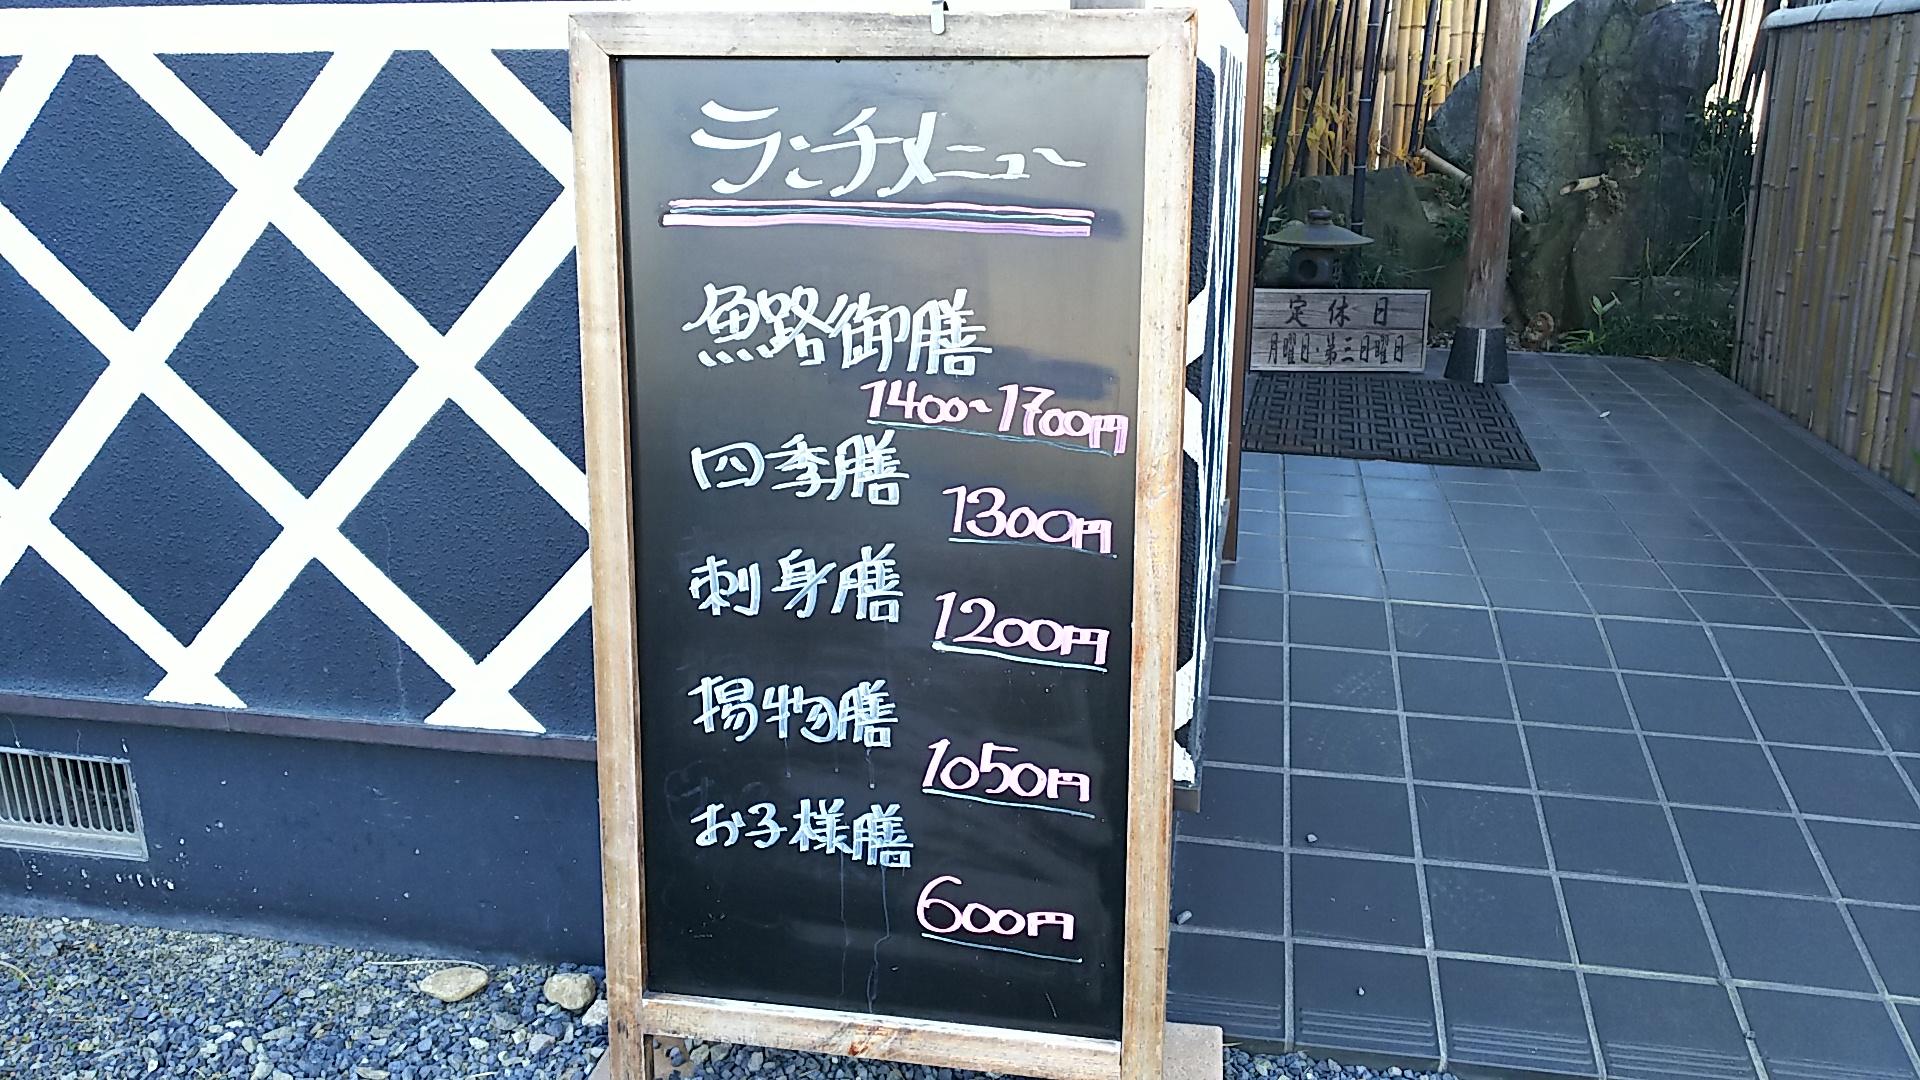 ランチメニュー
魚路御膳
1400~1700円
四季膳
1300円
刺身膳
1200円
揚物膳
1050円
お子様膳
600円
定休日
月曜日・第三日曜日